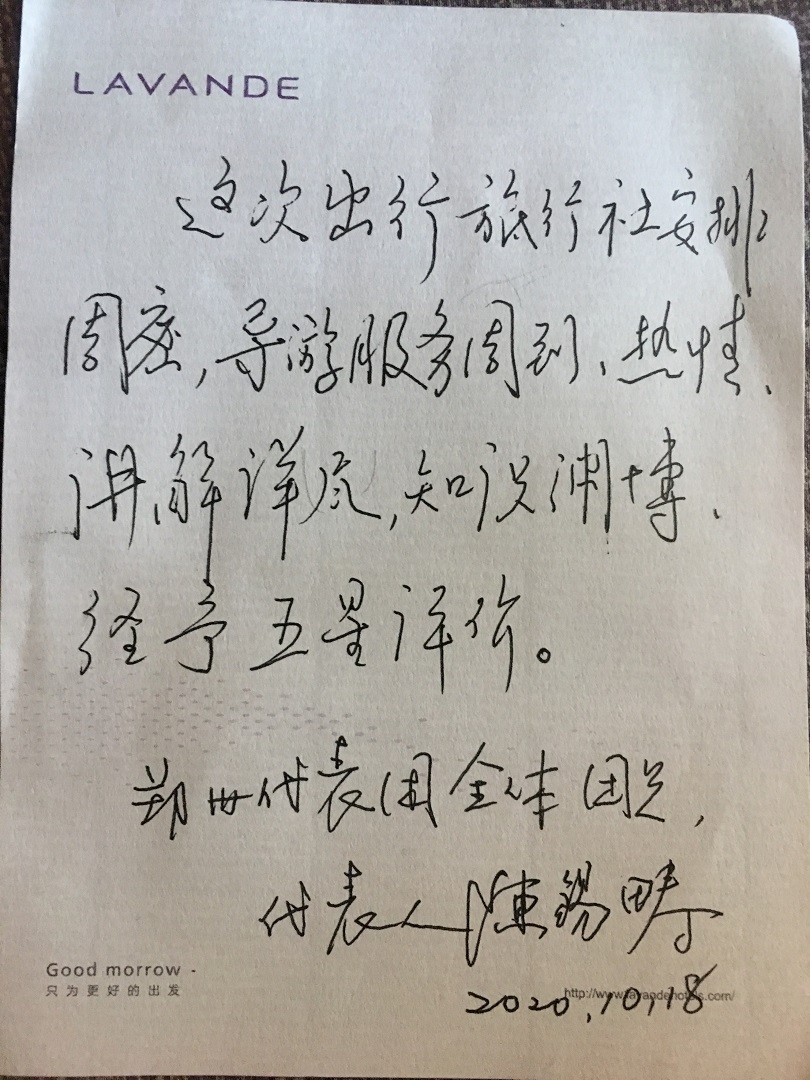 LAVANDE
这次出行旅行社安排
周密,导游服务周到、热情、
讲解详尽,知识渊博、
给予五星评价。
郑州代表团全体团员,
代表人陈锡畴
Good morrow -
只为更好的出发
http://www.lavandehotels.com/
2020,10,18